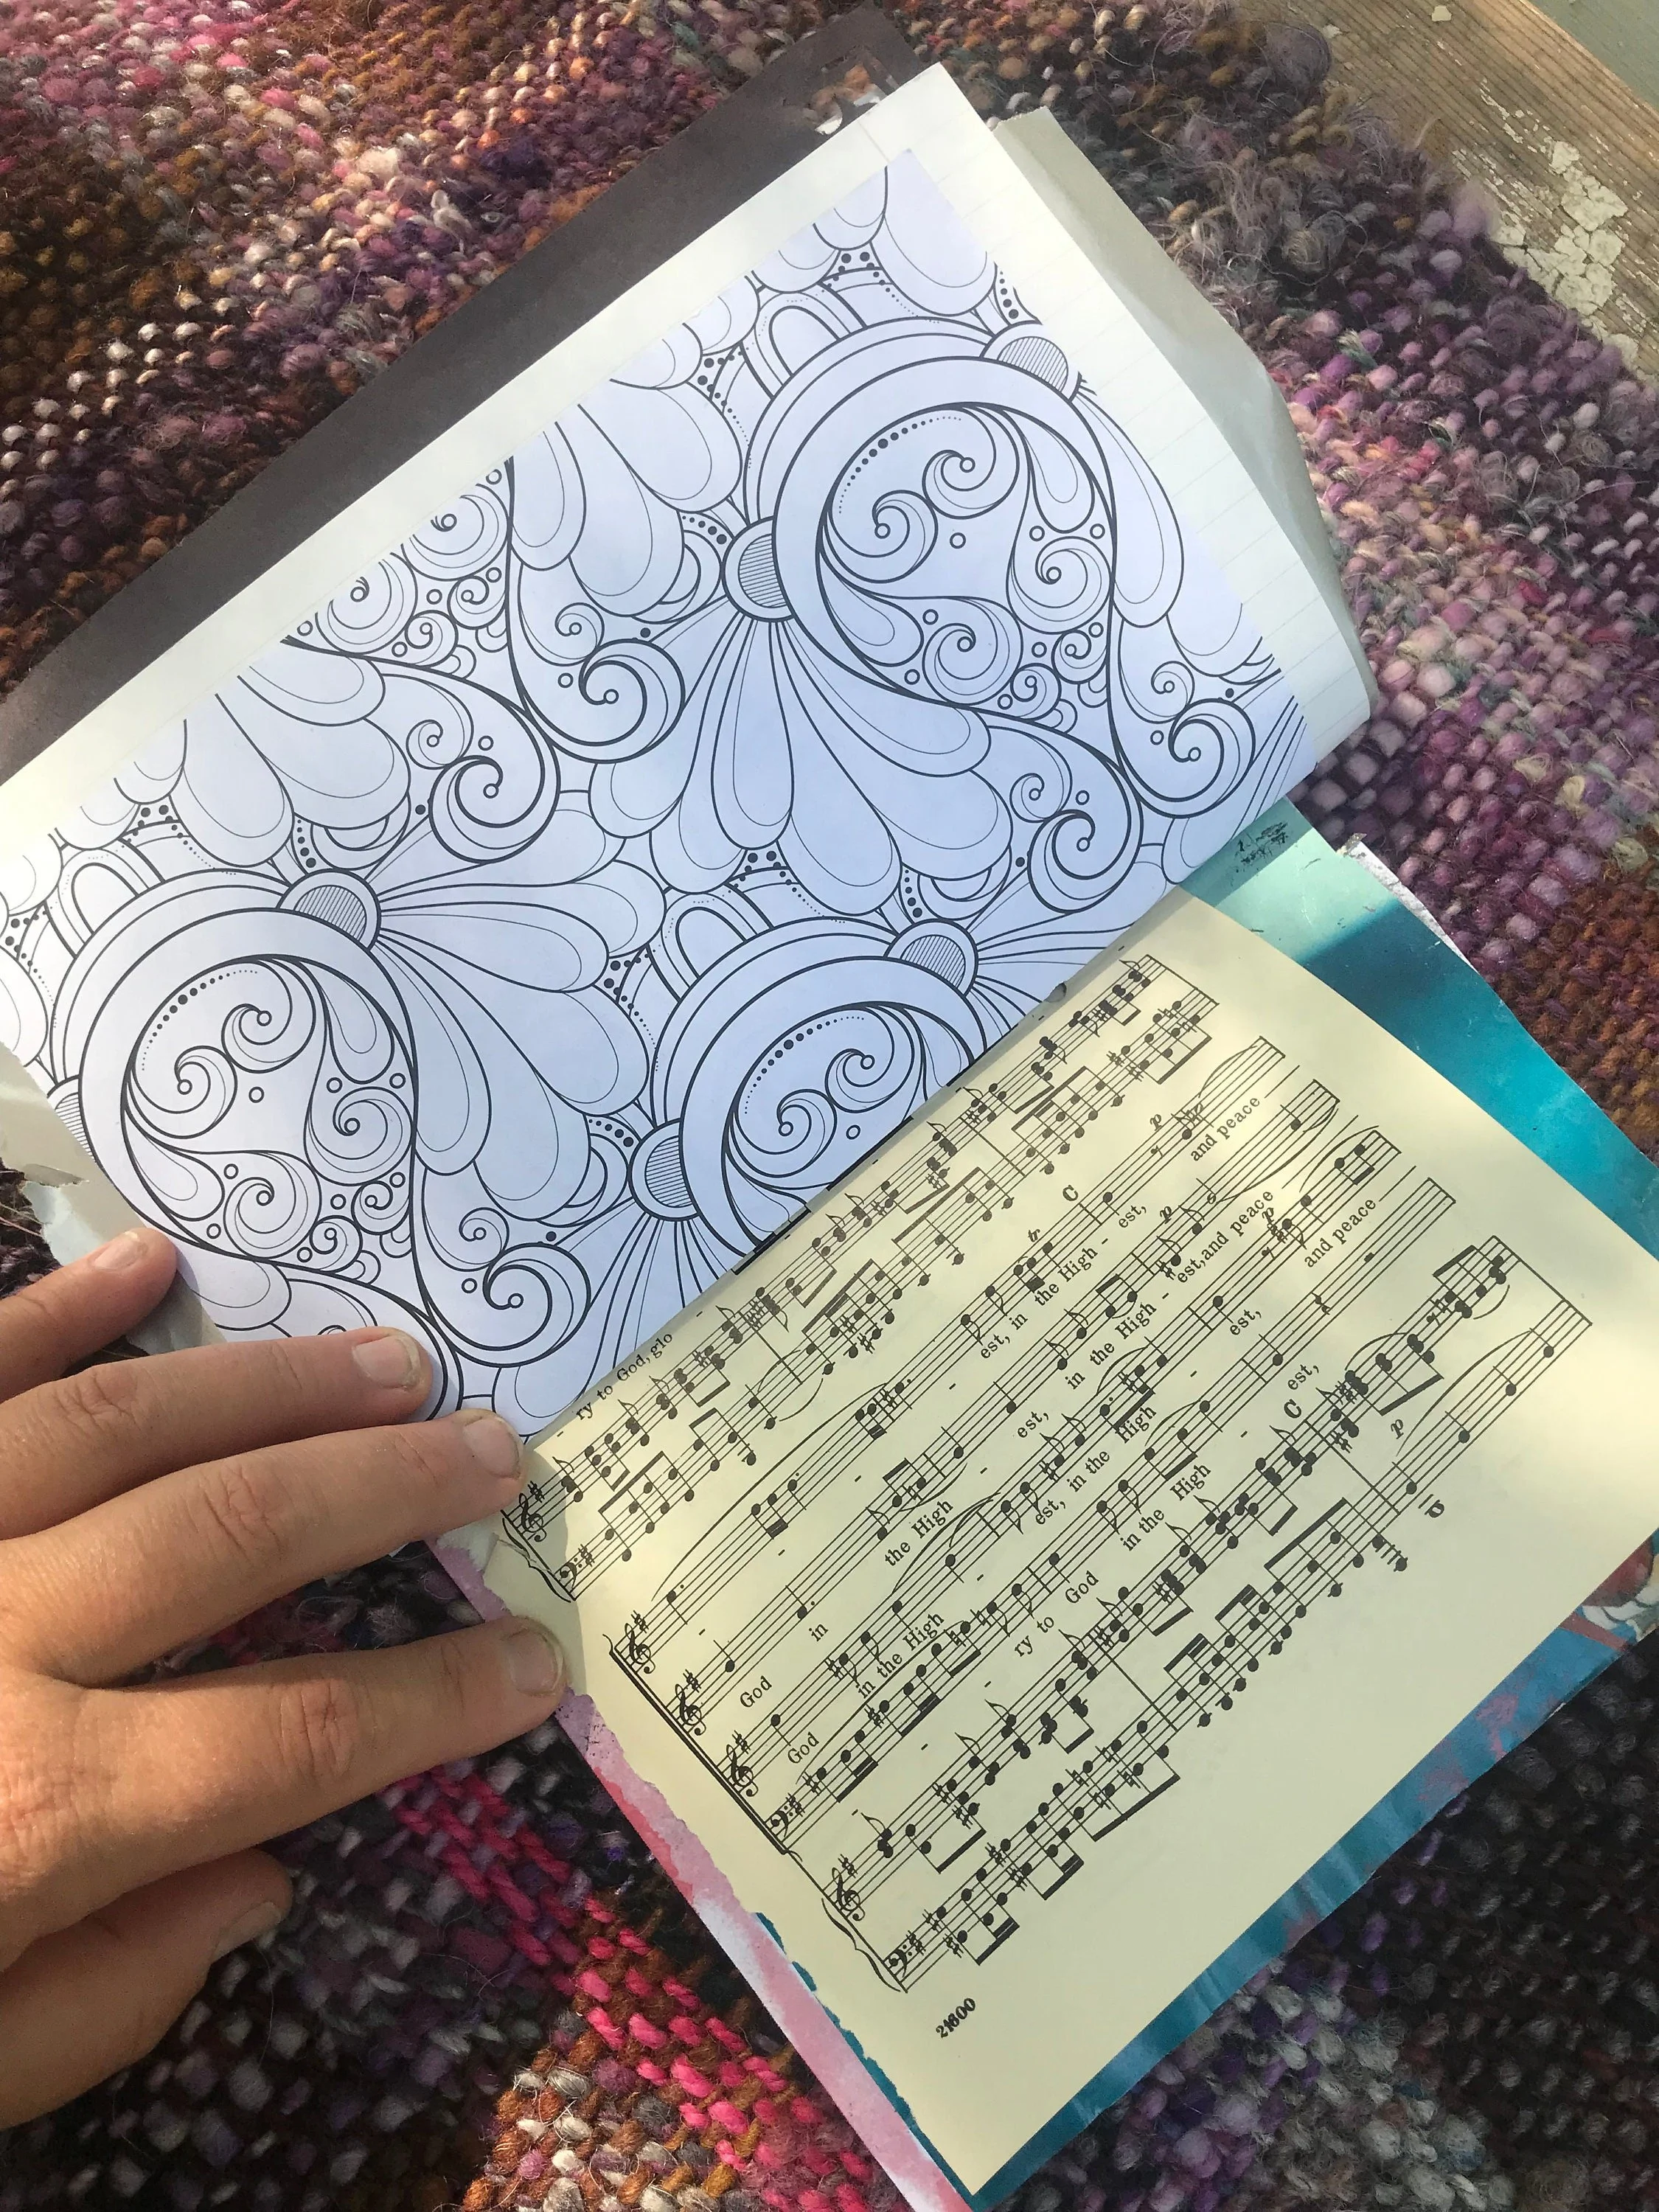 ry to God, glo -
tr C p
- - - est, in the High - est, and peace
p
God in the High - est, in the High - est, and peace
p
God in the High - est, in the High - est, and peace
- - ry to God in the High - est,
C
p